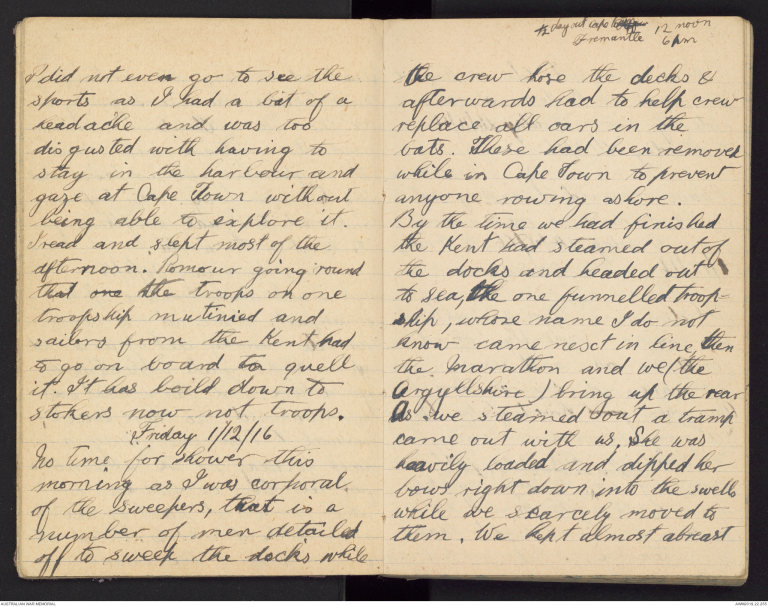 I did not even go to see the
sports as I had a bit of a
headache and was too
disgusted with having to
stay in the harbour and
gaze at Cape Town without
being able to explore it.
I read and slept most of the
afternoon. Romour going round
that one the troops on one
troopship mutinied and
sailors from the Kent had
to go on board to quell
it. It has boild down to
stokers now not troops.
Friday 1/12/16
No time for shower this
morning as I was corporal
of the sweepers, that is a
number of men detailed
off to sweep the decks while
½ day out Cape 12 noon
Fremantle 6 pm
the crew hose the decks &
afterwards had to help crew
replace all oars in the
bots. These had been removed
while in Cape Town to prevent
anyone rowing ashore.
By the time we had finished
the Kent had steamed out of
the docks and headed out
to sea, the one funnelled troop-
ship, whose name I do not
know came next in line, then
the Marathon and we (the
Argyllshire) bring up the rear
As we steamed out a tramp
came out with us. She was
heavily loaded and dipped her
bows right down into the swells
while we scarcely moved to
them. We kept almost abreast
AUSTRALIAN WAR MEMORIAL